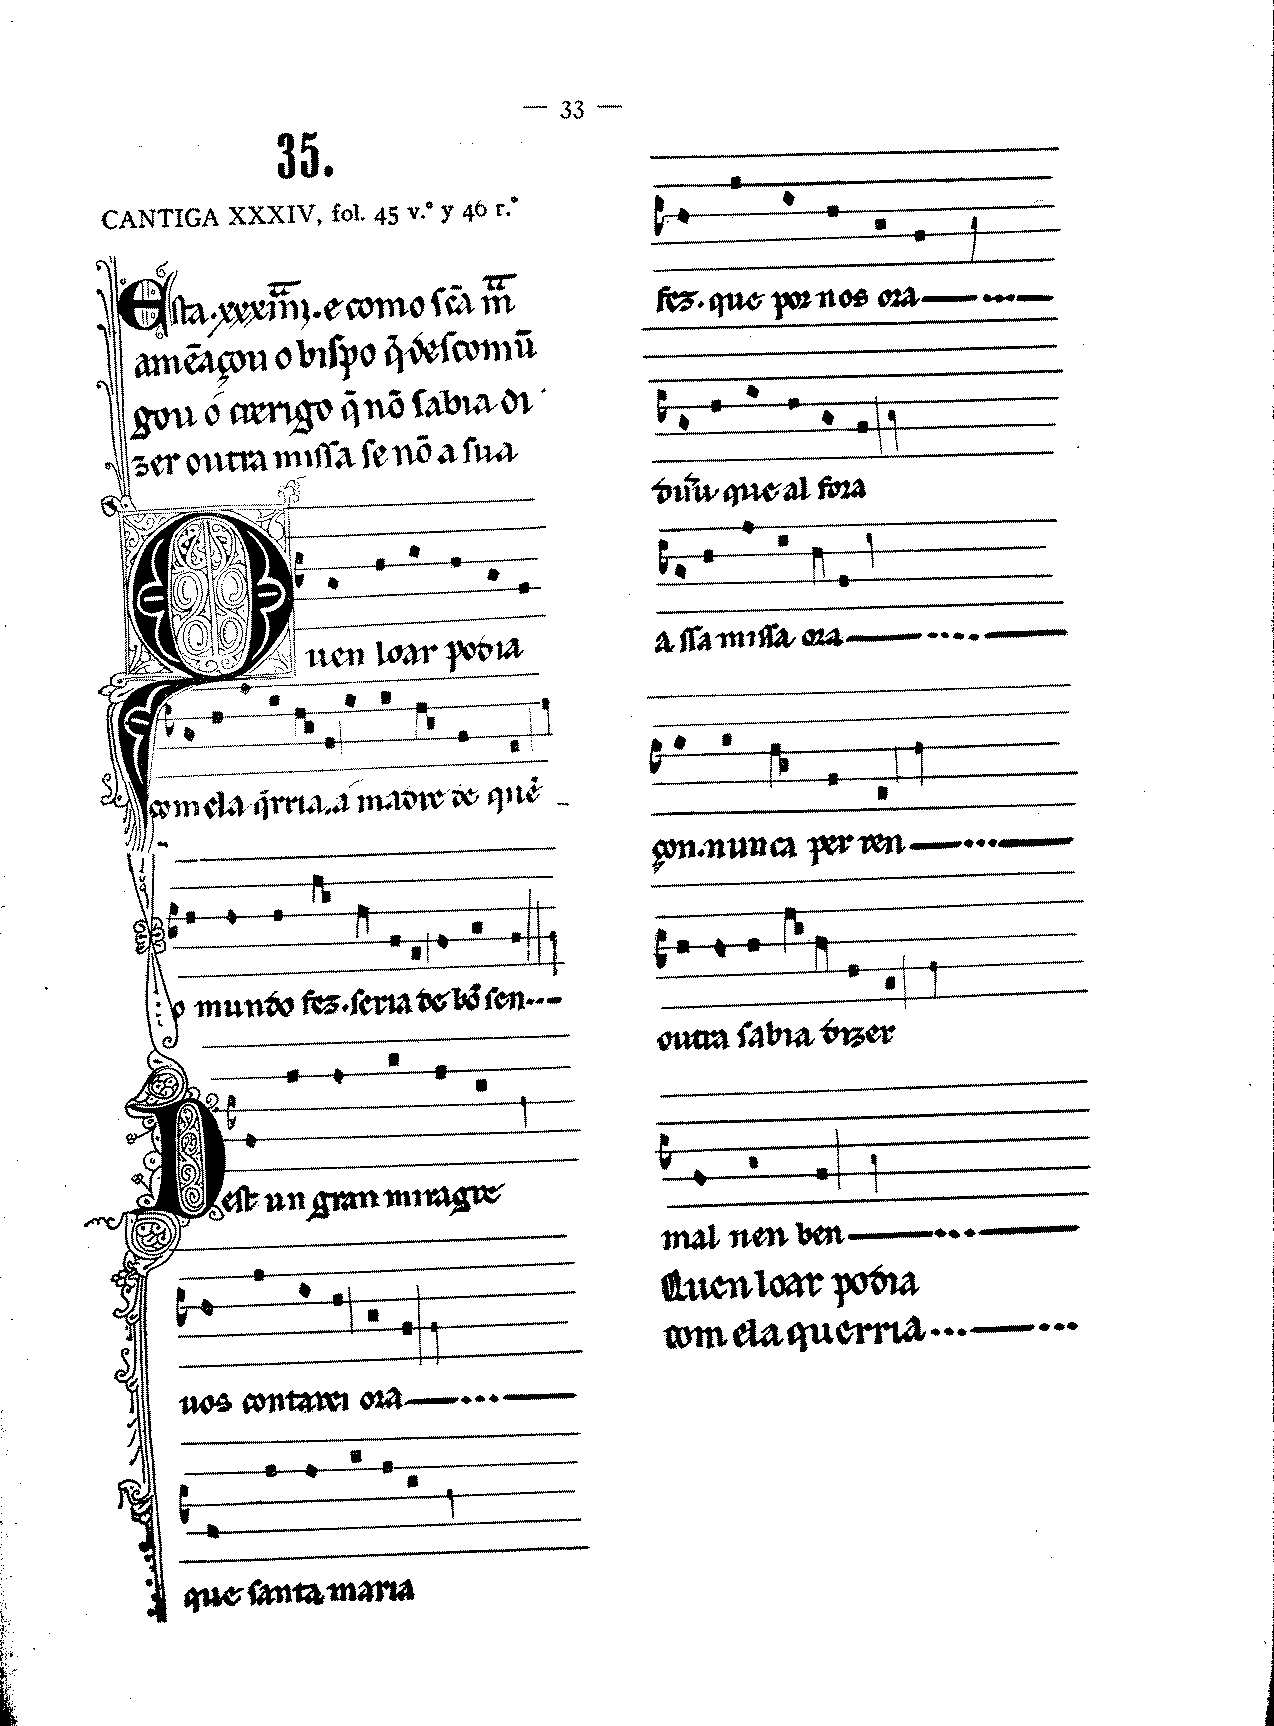 — 33 —
35.
CANTIGA XXXIV, fol. 45 v.° y 46 r.°
Esta .xxxiiij. e como scã m̃
amẽaçou o bispo q̃ descomũ
gou o crerigo q̃ nõ sabia di
zer outra missa se nõ a sua
Quen loar podia
com ela q̃rria. a madre de quẽ
o mundo fez. seria de bõ sen
Dest un gran miragre
uos contarei ora
que santa maria
fez. que por nos ora
que al fora
a ssa missa ora
çon. nunca per ren
outra sabia dizer
mal nen ben
Quen loar podia
com ela querria